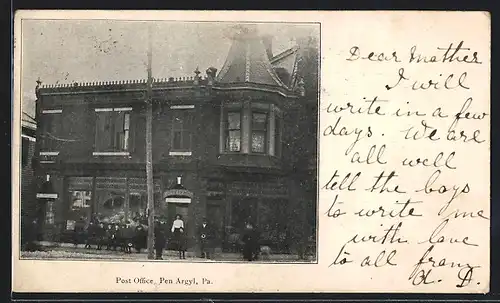 Dear Mother
I will
write in a few
days. We are
all well
tell the boys
to write me
with love
to all from
A. D.
Post Office, Pen Argyl, Pa.